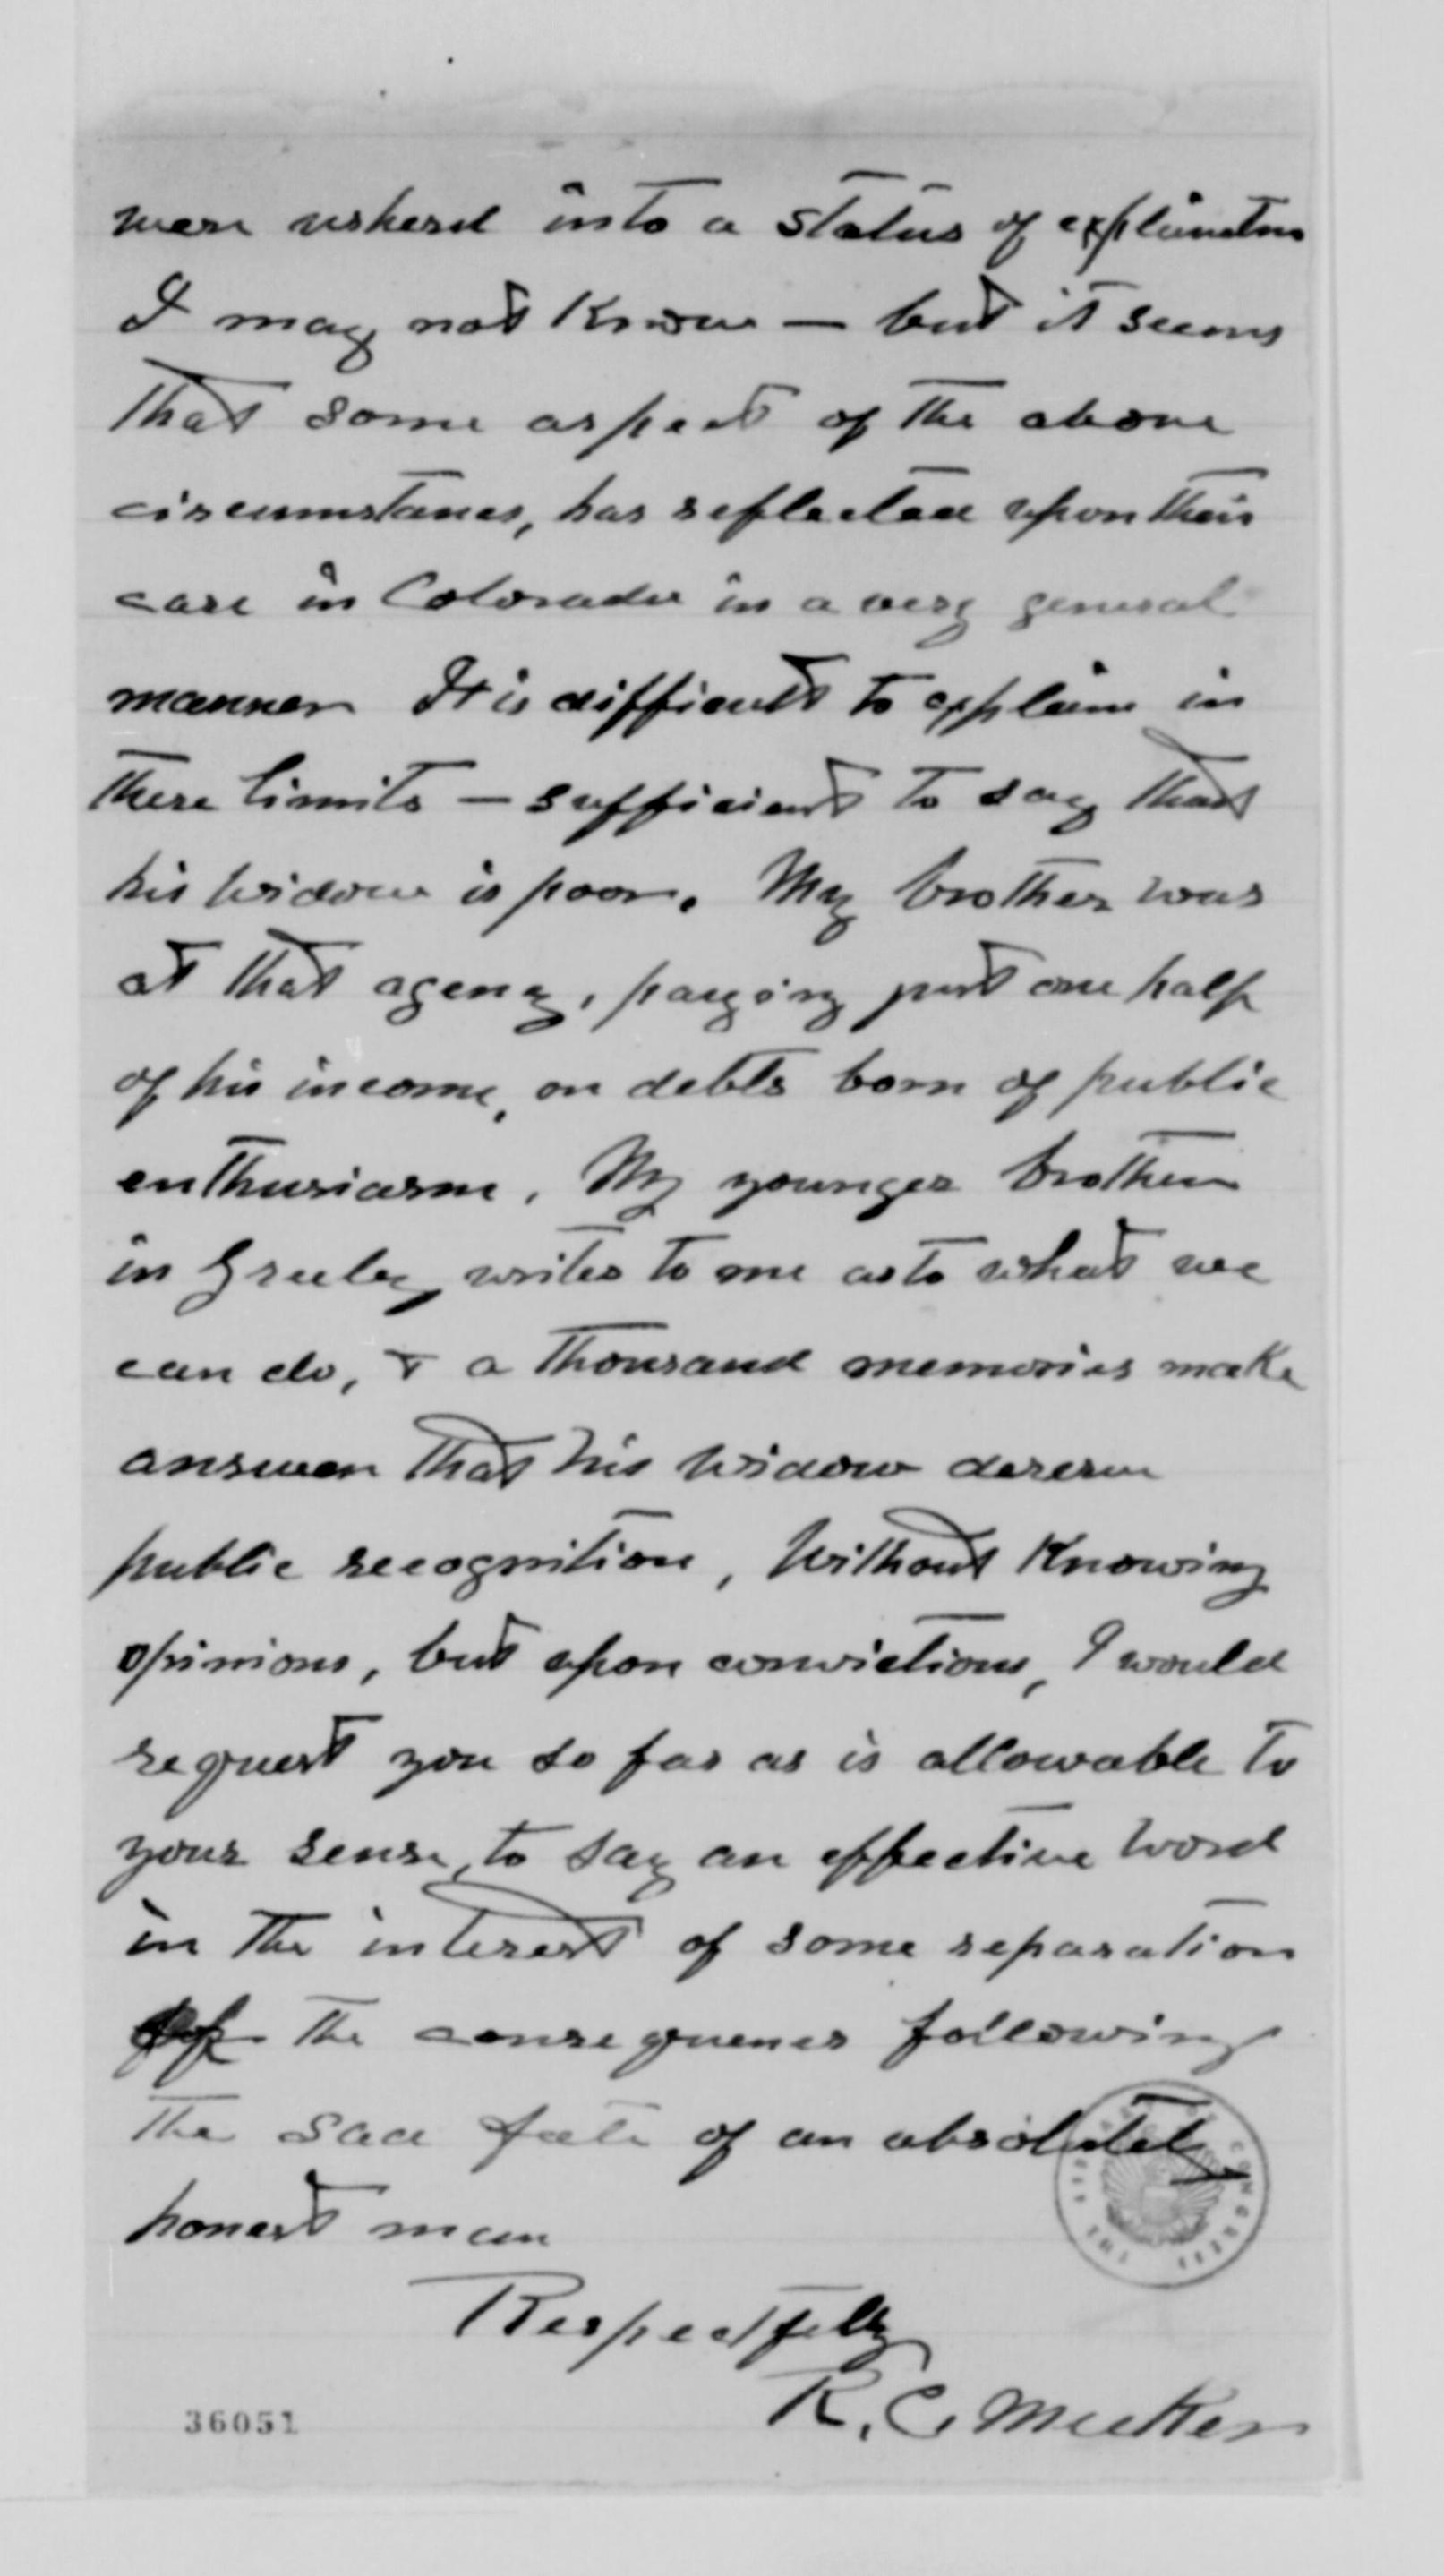 were ushered into a status of explination
I may not know — but it seems
that some aspect of the above
circumstances, has reflected upon their
case in Colorado in a very general
manner It is difficult to explain in
these limits — sufficient to say that
his widow is poor. My brother was
at that agency, paying just one half
of his income, on debts born of public
enthusiasm. My younger brother
in Greeley writes to me as to what we
can do, & a thousand memories make
answer that his widow deserve
public recognition, Without knowing
opinions, but upon convictions, I would
request you so far as is allowable to
your sense, to say an effective word
in the interest of some reparation
of the consequences following
the sad fate of an absolutely
honest man
Respectfully
R. C. Meeker
36051